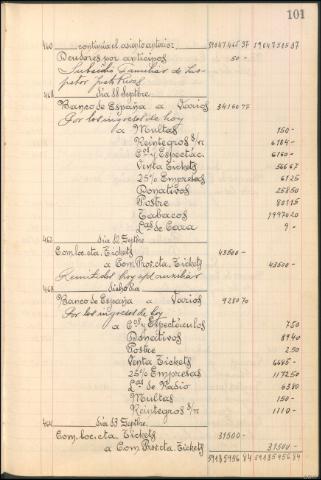 101
460 continúa el asiento anterior 59047465 37 59047535 37
Deudores por anticipos 50 -
Subsidio Familiar de Ins-
461 día 18 Septbre.
Banco de España a Varios 34160 77
Por los ingresos de hoy
a Multas 150 -
Reintegros S/n 6184 -
Cº y Espectác. 6160 -
Venta Tickets 566 67
25% Empresas 61 25
Donativos 258 50
Postre 801 15
Tabacos 19970 20
Lªˢ de Caza 9 -
462 día 22 Septbre
Com. loc. cta. Tickets 43500 -
a Com. Prov. cta. Tickets 43500 -
Remite del hoy
463 dicho día
Banco de España a Varios 9280 70
Por los ingresos de hoy
a Cº y Espectáculos 7 50
Donativos 89 40
Postre 2 50
Venta Tickets 6645 -
25% Empresas 1172 50
Lªˢ de Radio 63 80
Multas 150 -
Reintegros S/n 1110 -
464 día 23 Septbre.
Com. loc. cta. Tickets 31500 -
a Com. Prov. cta. Tickets 31500 -
59185956 84 59185956 84